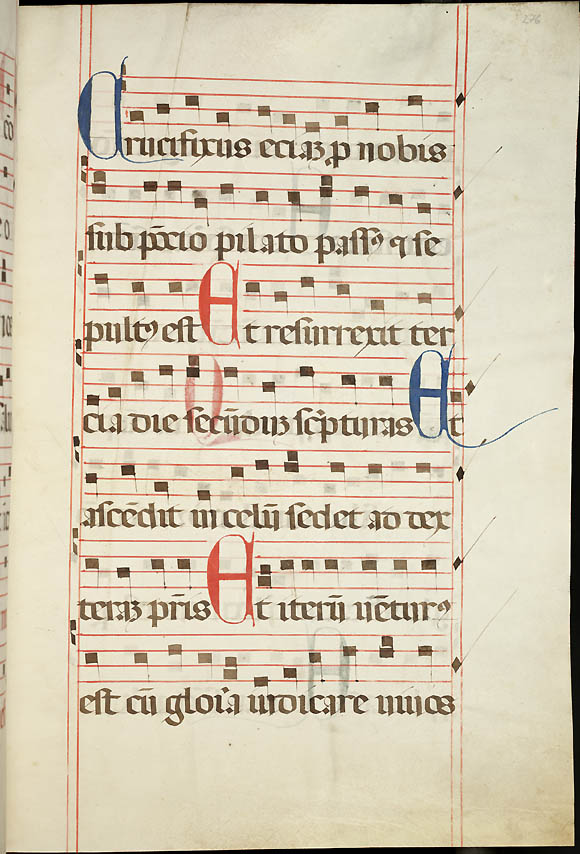 276
Crucifixus eciaʒ ꝓ nobis
sub põcio pilato passꝰ ⁊ se
pultꝰ est Et resurrexit ter
cia die secũduʒ sc̃pturas Et
ascẽdit in celũ sedet ad dex
teraʒ pr̃is Et iterũ uẽturꝰ
est cũ gloria iudicare uiuos